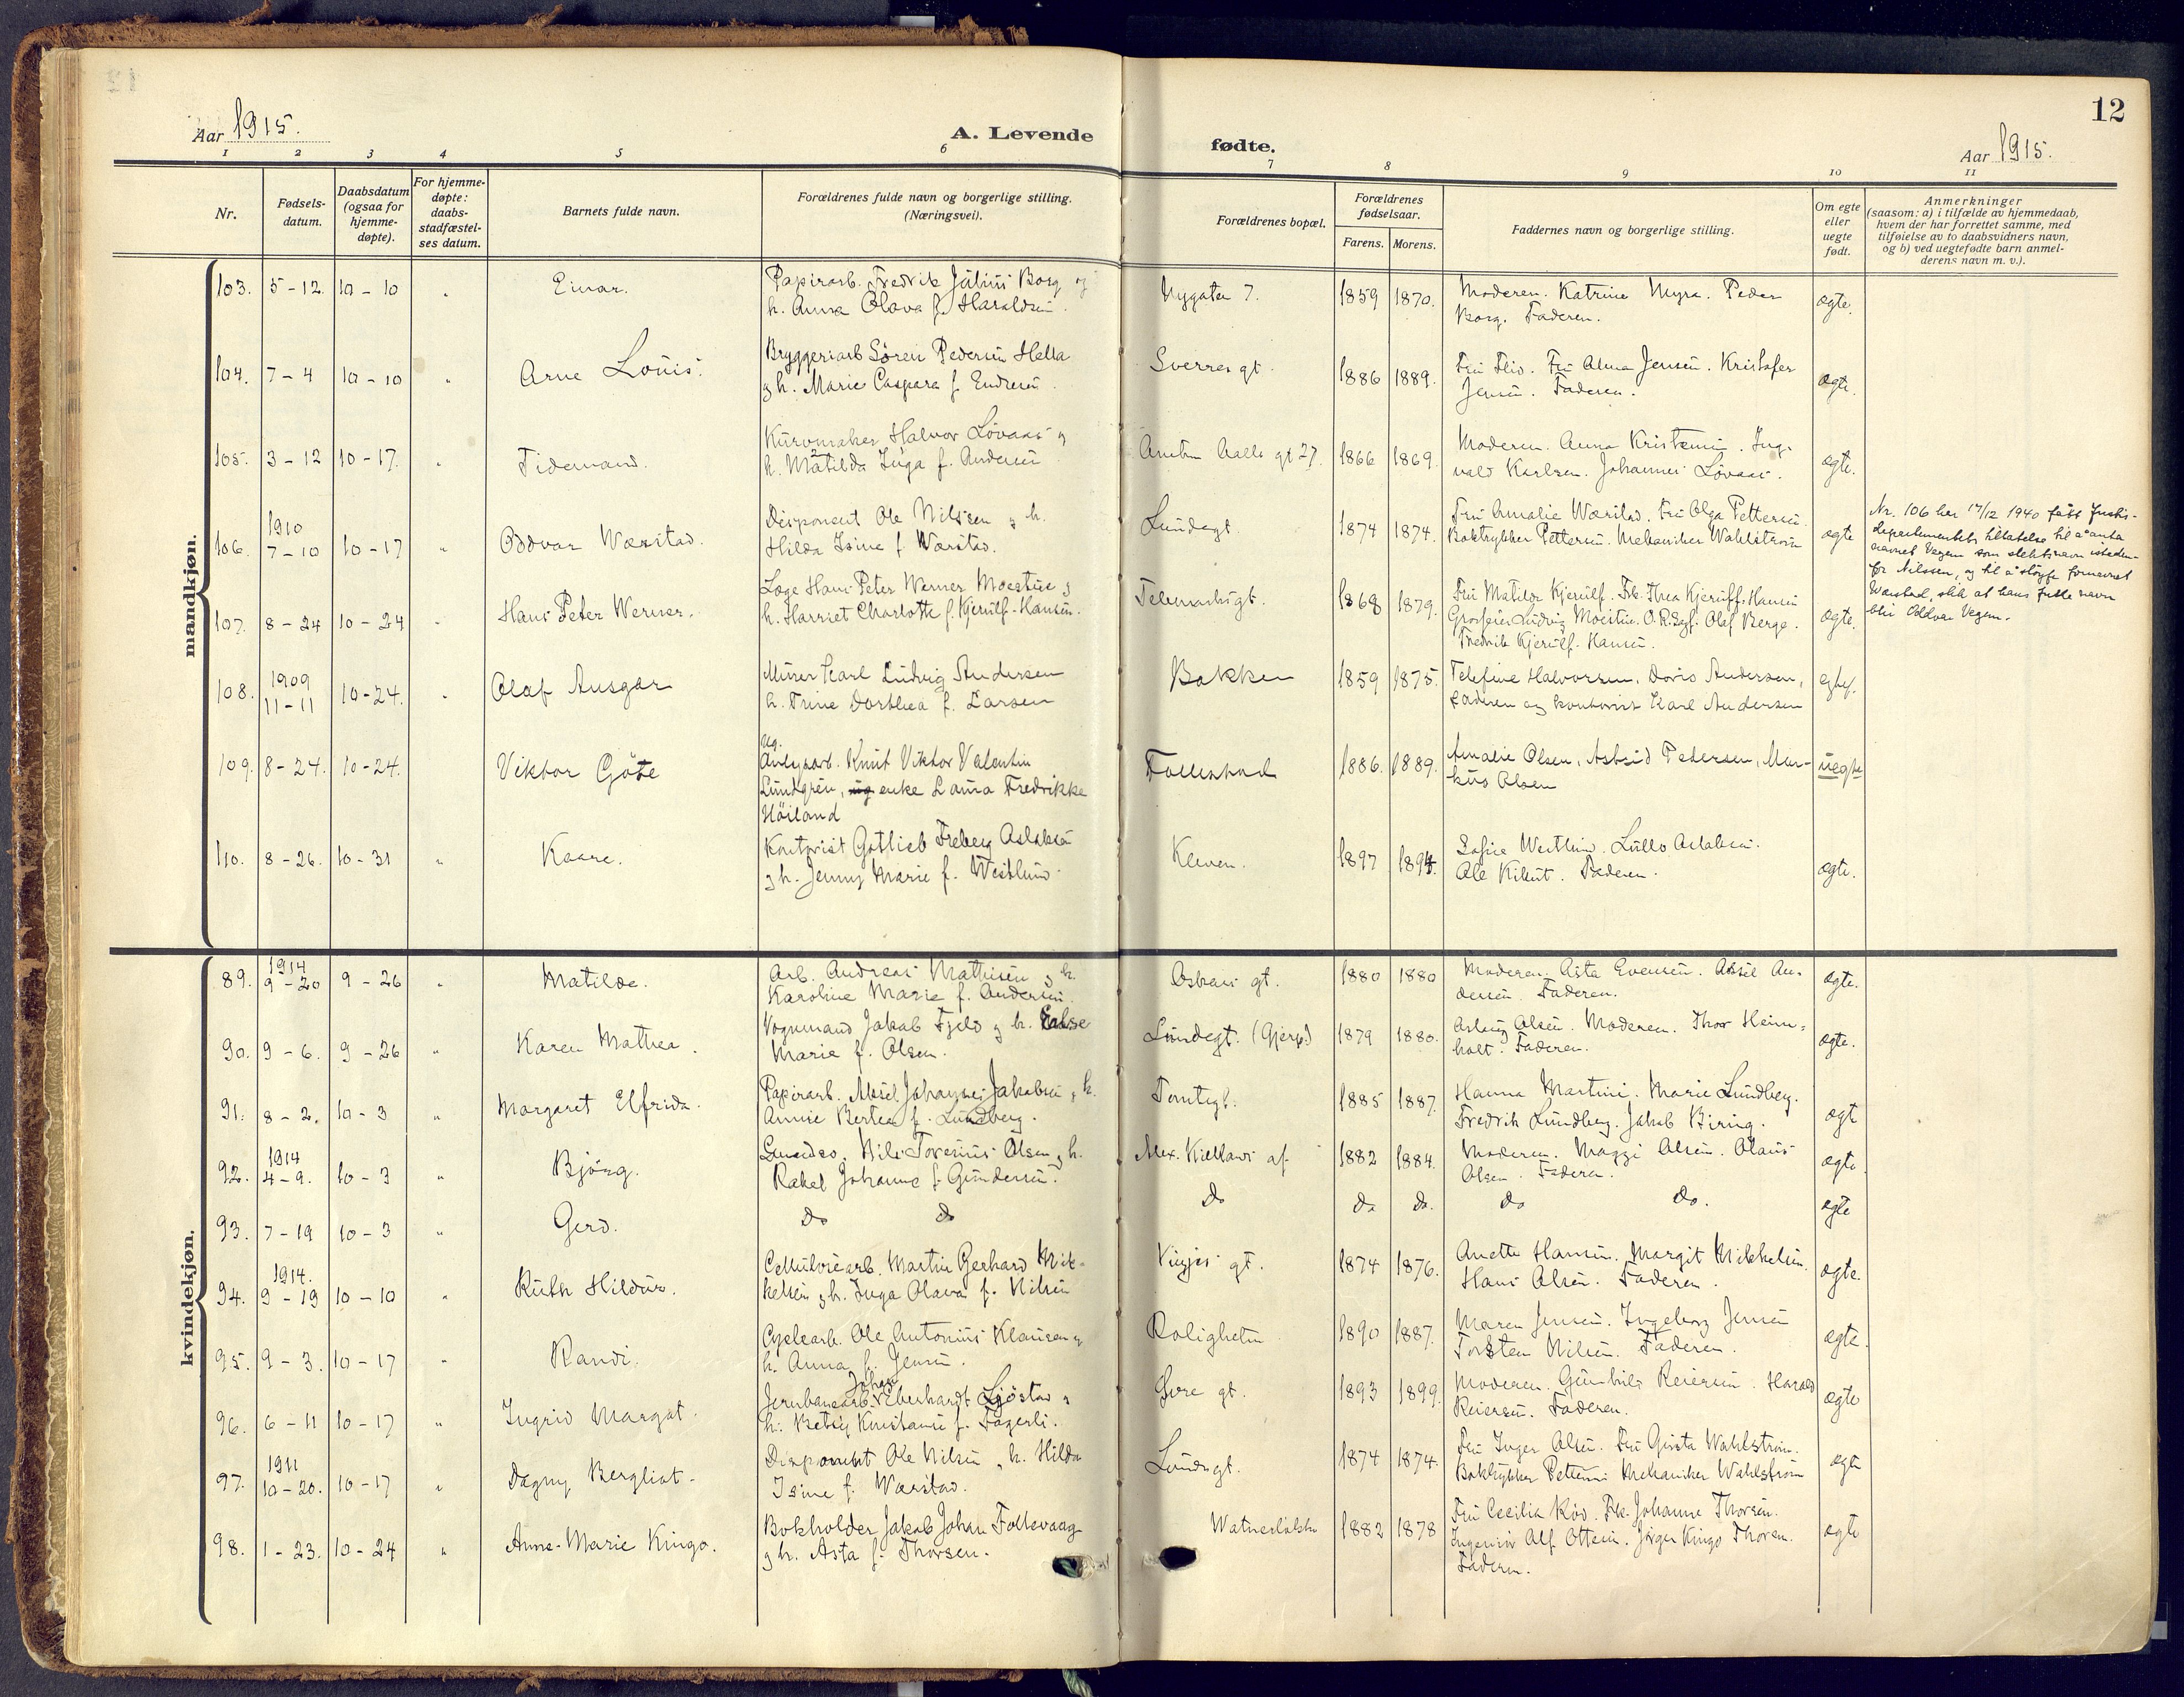 12
Aar 1915.
A. Levende fødte.
Aar 1915.
1 2 3 4 5 6 7 8 9 10 11
Nr.
Fødsels-
datum.
Daabsdatum
(ogsaa for
hjemme-
døpte).
For hjemme-
døpte:
daabs-
stadfæstel-
ses datum.
Barnets fulde navn.
Forældrenes fulde navn og borgerlige stilling.
(Næringsvei).
Forældrenes bopæl.
Forældrenes
fødselsaar.
Farens. Morens.
Faddernes navn og borgerlige stilling.
Om egte
eller
uegte
født.
Anmerkninger
(saasom: a) i tilfælde av hjemmedaab,
hvem der har forrettet samme, med
tilføielse av to daabsvidners navn,
og b) ved uegtefødte barn anmel-
derens navn m. v.).
mandkjøn.
103. 5-12. 10-10 " Einar. Papirarb. Fredrik Julius Borg og Nygaten 7. 1859 1870. Moderen. Katrine Myra. Peder ægte.
h. Anna Olava f. Haraldsen. Borg. Faderen.
104. 7-4 10-10 " Arne Louis. Bryggeriarb Søren Pedersen Hella Sverres gt. 1886 1889. Fru Flid. Fru Alma Jensen. Kristofer ægte.
og h. Marie Caspara f. Endresen. Jensen. Faderen.
105. 3-12 10-17. " Tidemand. Kurvmaker Halvor Løvaas og Amtm Aalls gt 27. 1866 1869. Moderen. Anna Kristensen. Ing- ægte.
h. Matilda Inga f. Andersen vald Karlsen. Johannes Løvaas.
1910
106. 7-10 10-17 " Oddvar Wærstad. Disponent Ole Nilsen og h. Lundegt. 1874 1874. Fru Amalie Wærstad. Fru Olga Pettersen. ægte
Hilda Isine f. Wærstad. Boktrykker Pettersen. Mekaniker Wahlstrøm
Nr. 106 har 17/12 1940 fått Justis-
departementets tillatelse til å anta
navnet Vegem som slektsnavn isteden-
for Nilssen, og til å sløyfe fornavnet
Wærstad, slik at hans fulle navn
blir Oddvar Vegem.
107. 8-24 10-24 " Hans Peter Werner. Læge Hans Peter Werner Moestue og Telemarksgt. 1868 1879. Fru Matilde Kjerulf. Frk. Thea Kjerulf-Hansen ægte.
h. Harriet Charlotte f. Kjerulf-Hansen. Grosserer Ludvig Moestue. O.R.Sagf. Olaf Berge.
Fredrik Kjerulf-Hansen.
1909
108. 11-11 10-24. " Olaf Ansgar Murer Karl Ludvig Andersen Bakken 1859 1875. Telefine Halvorsen, Doris Andersen, egtef.
h. Trine Dorthea f. Larsen faderen og kontorist Karl Andersen
109. 8-24. 10-24. Viktor Göte ug. Anlegsarb. Knut Viktor Valentin Follestad 1886. 1889. Amalie Olsen, Astrid Pedersen, Mar- uegte
Lundgren, ug enke Laura Fredrikke kus Olsen
Höiland
110. 8-26. 10-31 " Kaare. Kontorist Gotlieb Freberg Aslaksen Kleven. 1897 1894. Sofie Westlund. Lullo Aslaksen. ægte.
og h. Jenny Marie f. Westlund. Ole Kilent. Faderen.
kvindekjøn.
1914
89. 9-20 9-26 " Matilde. Arb. Andreas Mathisen og h. Oskars gt. 1880 1880 Moderen. Asta Evensen. Aksel An- ægte.
Karoline Marie f. Andersen. dersen. Faderen.
90. 9-6. 9-26 " Karen Mathea. Vognmand Jakob Fjeld og h. Lundegt. (Gjerp.) 1879 1880. Aslaug Olsen. Moderen. Thor Heim- ægte.
Marie f. Olsen. holt. Faderen.
91. 8-2. 10-3 " Margaret Elfrida. Papirarb. Aksel Johannes Jakobsen og h. Tomtegt. 1885 1887. Hanna Martini. Marie Lundberg. ægte
Annie Bertea f. Lundberg. Fredrik Lundberg. Jakob Biring.
1914
92. 4-9. 10-3 " Bjørg. Nils Torenius Olsen og h. Alex. Kiellands gt. 1882 1884. Moderen. Maggi Olsen. Olaus ægte.
Rakel Johanne f. Gundersen. Olsen. Faderen.
93. 7-19 10-3 " Gerd. do do do do do. do do. ægte
1914.
94. 9-19 10-10 " Ruth Hildur. Cellulosearb. Martin Gerhard Mik- Vinjes gt. 1874 1876. Anette Hansen. Margit Mikkelsen. ægte.
kelsen og h. Inga Olava f. Nilsen Hans Olsen. Faderen.
95. 9-3. 10-17 " Randi. Cyclearb. Ole Antonius Klausen og Roligheten. 1890 1887. Maren Jensen. Ingeborg Jensen ægte.
h. Anna f. Jensen. Torsten Nilsen. Faderen.
96. 6-11 10-17 " Ingrid Margot. Jernbanearb. Johan Eberhardt Sjöstad og Øvre gt. 1893 1899. Moderen. Gunhild Reiersen. Harald ægte
h. Betsy Kristansa f. Fagerli. Reiersen. Faderen.
1911
97. 10-20. 10-17 " Dagny Bergliot. Disponent Ole Nilsen og h. Hilda Lundegt. 1874 1874. Fru Inger Olsen. Fru Gusta Wahlstrøm. ægte
Isine f. Wærstad. Boktrykker Pettersen. Mekaniker Wahlstrøm
98. 1-23. 10-24 " Anne-Marie Kingo. Bokholder Jakob Johan Follevaag 1882 1878 Fru Cecilia Rød. Frk. Johanne Thorsen. ægte
og h. Asta f. Thorsen. Ingeniør Alf Ottesen. Jørgen Kingo Thorsen.
Faderen.